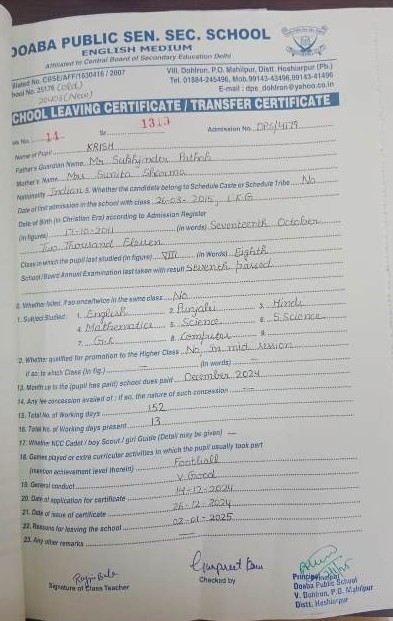 DOABA PUBLIC SEN. SEC. SCHOOL
ENGLISH MEDIUM
Affiliated to Central Board of Secondary Education Delhi
No. CBSE/AFF/1630416 / 2007
Vill. Dohlron, P.O. Mahilpur, Distt. Hoshiarpur (Pb.)
No. 25176 (Old)
Tel. 01884-245496, Mob.99143-43496,99143-41496
20408 (New)
E-mail : dps_dohlron@yahoo.co.in
CHOOL LEAVING CERTIFICATE / TRANSFER CERTIFICATE
No. 14
Sr 1313
Admission No. DPS/4179
Name of Pupil KRISH
Father's/Guardian Name Mr Sukhjinder Pathak
Mother's Name Mrs Sunita Sharma
Nationality Indian 5. Whether the candidate belong to Schedule Caste or Schedule Tribe No
Date of first admission in the school with class 26-03-2015, L.K.G
Date of Birth (in Christian Era) according to Admission Register
(in figures) 17-10-2011 (in words) Seventeenth October
Two Thousand Eleven
Class in which the pupil last studied (in figure) VIII (in Words) Eighth
School/Board Annual Examination last taken with result Seventh passed
Whether failed, if so once/twice in the same class No
Subject Studied: 1. English 2. Punjabi 3. Hindi
4. Mathematics 5. Science 6. S.Science
7. G.K 8. Computer 9.
Whether qualified for promotion to the Higher Class No, In mid session
if so, to which Class (in fig.) — (in words) —
13. Month up to the (pupil has paid) school dues paid December 2024
14. Any fee concession availed of : if so, the nature of such concession —
15. Total No. of Working days 152
16. Total No. of Working days present 13
17. Whether NCC Cadet / boy Scout / girl Guide (Detail may be given) —
18. Games played or extra curricular activities in which the pupil usually took part
(mention achievement level therein) Football
19. General conduct V. Good
20. Date of application for certificate 14-12-2024
21. Date of issue of certificate 26-12-2024
22. Reasons for leaving the school 02-01-2025
23. Any other remarks —
Signature of Class Teacher
Checked by
Principal
Doaba Public School
V. Dohlron, P.O. Mahilpur
Distt. Hoshiarpur